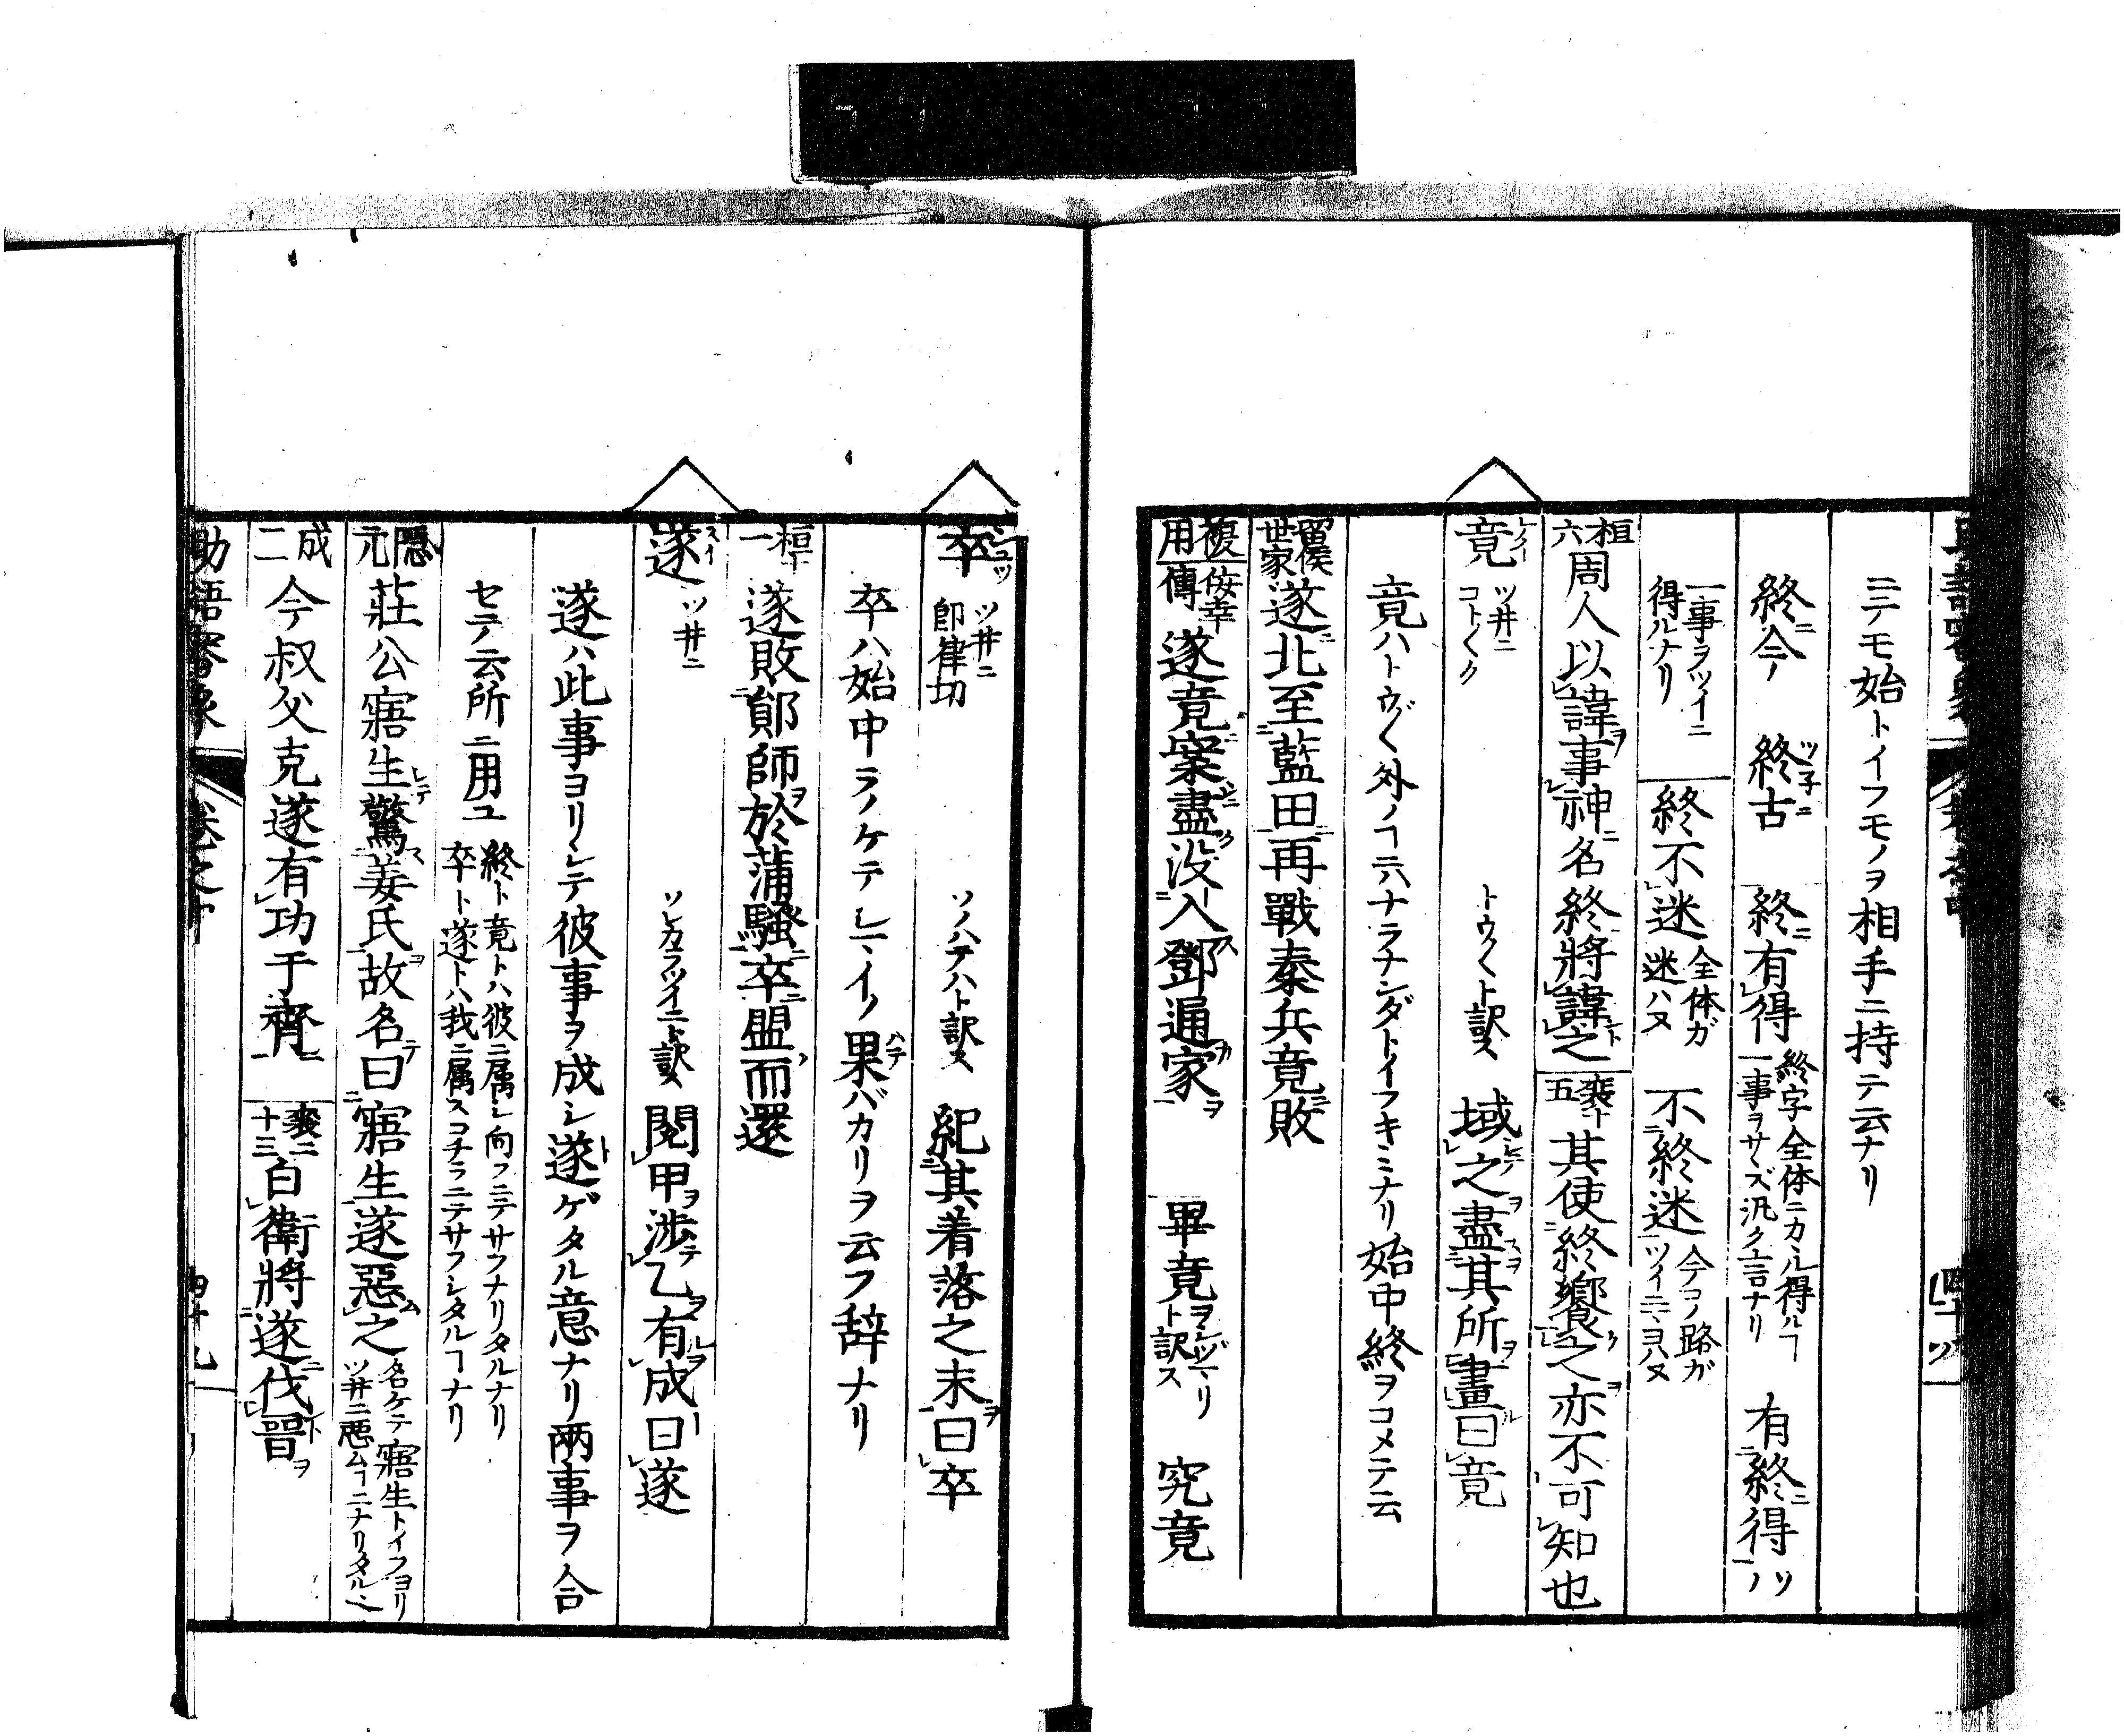 ニテモ始トイフモノヲ相手ニ持テ云ナリ
終ニ今ノ 終古ツ子ニ 終ニ有得 終字全体ニカヽル得ルヿ
一事ヲサヽズ汎ク言ナリ 有終ニ得ツノ
一事ヲツイニ
得ルナリ
終不迷 全体ガ
迷ハヌ 不終迷 今コノ路ガ
ツイニヨハヌ
桓六 周人以諱事神名終將諱之 襄十五 其使終饗之亦不可知也
竟ケイ ツ井ニ
コトヾヽク トウ〱ト訳ス 域之盡其所畫曰竟
竟ハトウ〲外ノヿニハナラナンダトイフキミナリ始中終ヲコメテ云
留侯世家 遂北至藍田再戰秦兵竟敗
複用 佞幸傳 遂竟案盡没入鄧通家 畢竟 ヲシヅマリト訳ス 究竟
卒シユツ ツ井ニ
即律切 ソノハテハト訳ス 紀其着落之末曰卒
卒ハ始中ラノケテシマイノ果バカリヲ云フ辞ナリ
桓十一 遂敗鄖師於蒲騷卒盟而還
遂スイ ツ井ニ ソレカラツイニト訳ス 閲甲渉乙有成曰遂
遂ハ此事ヨリシテ彼事ヲ成シ遂ゲタル意ナリ兩事ヲ合
セテ云所ニ用ユ 終ト竟トハ彼ニ属シ向フニテサフナリタルナリ
卒ト遂トハ我ニ属スコチラニテサフシタルヿナリ
隱元 莊公寤生驚姜氏故名曰寤生遂惡之 名ケテ寤生トイフヨリ
ツ井ニ悪ムヿニナリタル
成二 今叔父克遂有功于齊 襄二十三 自衛將遂伐晉
助語審象 巻之中 四十九